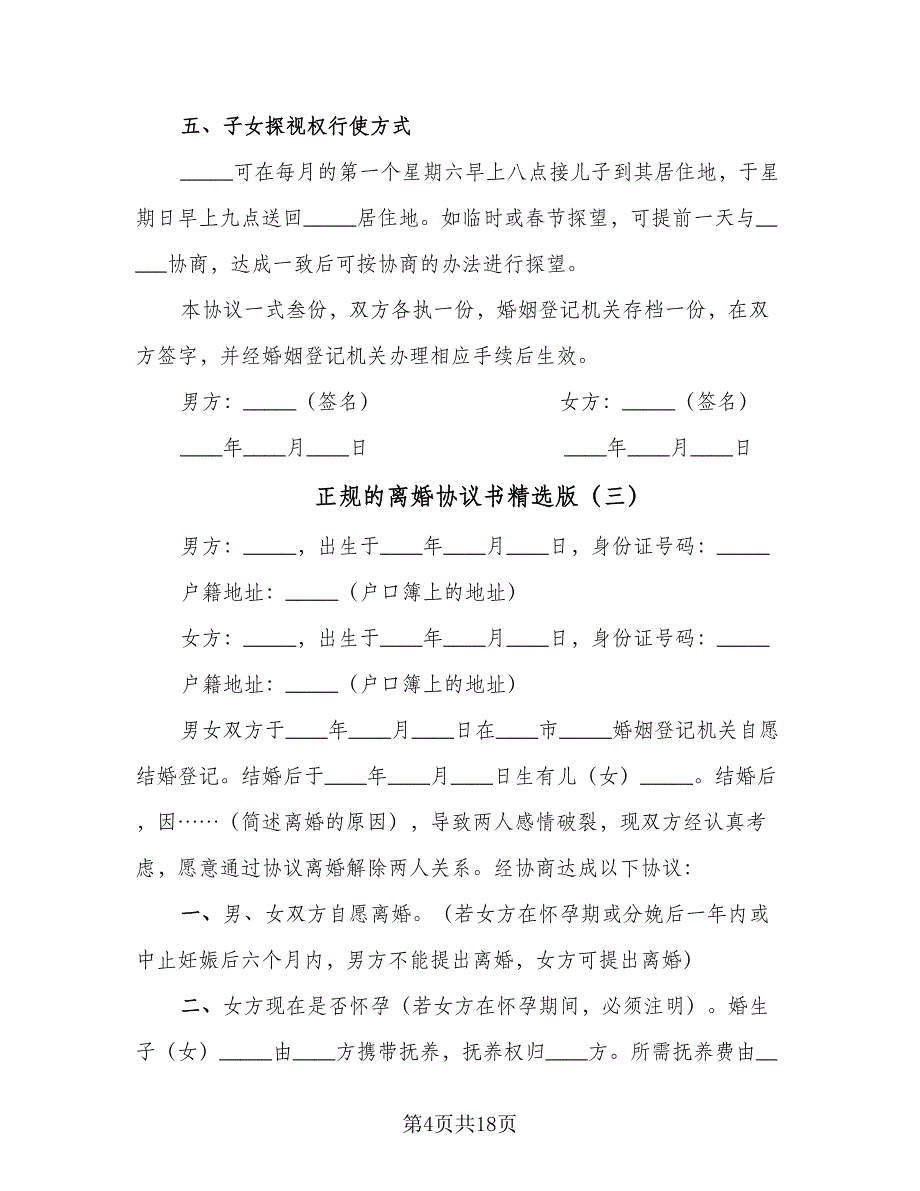 五、子女探视权行使方式
_____可在每月的第一个星期六早上八点接儿子到其居住地，于星
期日早上九点送回_____居住地。如临时或春节探望，可提前一天与__
___协商，达成一致后可按协商的办法进行探望。
本协议一式叁份，双方各执一份，婚姻登记机关存档一份，在双
方签字，并经婚姻登记机关办理相应手续后生效。
男方：_____（签名） 女方：_____（签名）
____年____月____日 ____年____月____日
正规的离婚协议书精选版（三）
男方：_____，出生于____年____月____日，身份证号码：_____
户籍地址：_____（户口簿上的地址）
女方：_____，出生于____年____月____日，身份证号码：_____
户籍地址：_____（户口簿上的地址）
男女双方于____年____月____日在____市_____婚姻登记机关自愿
结婚登记。结婚后于____年____月____日生有儿（女）_____。结婚后
，因……（简述离婚的原因），导致两人感情破裂，现双方经认真考
虑，愿意通过协议离婚解除两人关系。经协商达成以下协议：
一、男、女双方自愿离婚。（若女方在怀孕期或分娩后一年内或
中止妊娠后六个月内，男方不能提出离婚，女方可提出离婚）
二、女方现在是否怀孕（若女方在怀孕期间，必须注明）。婚生
子（女）_____由____方携带抚养，抚养权归____方。所需抚养费由__
第4页共18页